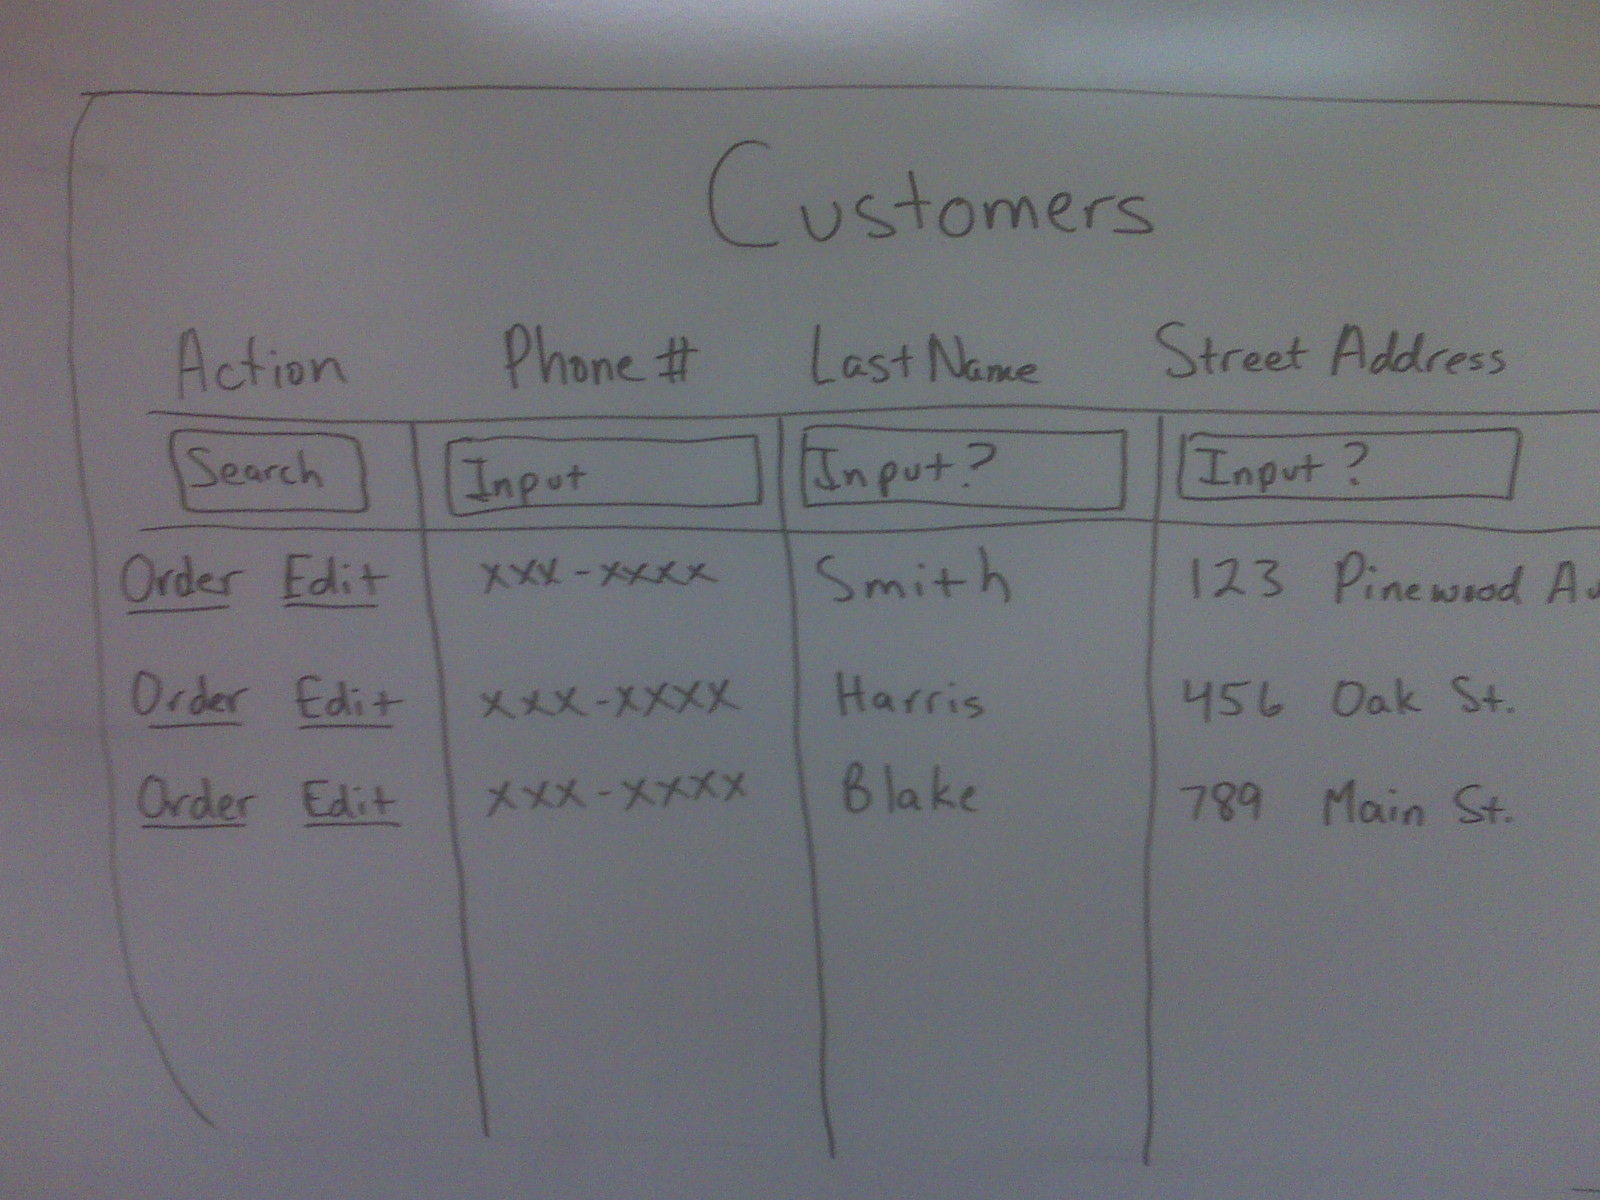 Customers
Action Phone # Last Name Street Address
Search Input Input? Input?
Order Edit xxx-xxxx Smith 123 Pinewood
Order Edit xxx-xxxx Harris 456 Oak St.
Order Edit xxx-xxxx Blake 789 Main St.